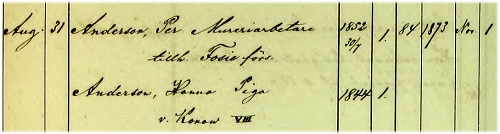 Aug. 31 Anderson, Per Mureriarbetare 1852 30/7 1. 84 1873 Nov. 1
tillh. Fosie förs.
Anderson, Hanna Piga 1844 1.
v. Konow VIII